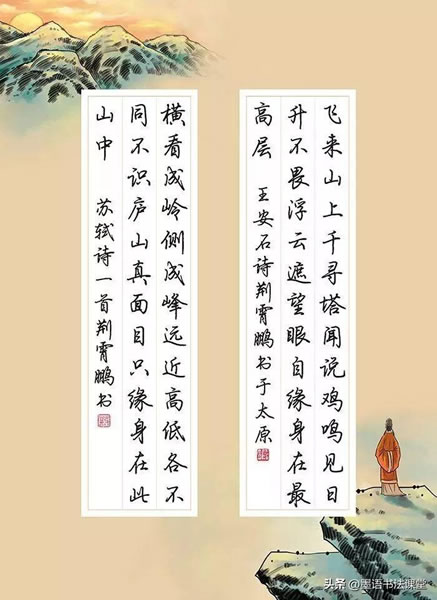 飞来山上千寻塔闻说鸡鸣见日
升不畏浮云遮望眼自缘身在最
高层 王安石诗荆霄鹏书于太原
横看成岭侧成峰远近高低各不
同不识庐山真面目只缘身在此
山中 苏轼诗一首荆霄鹏书
头条@墨语书法课堂